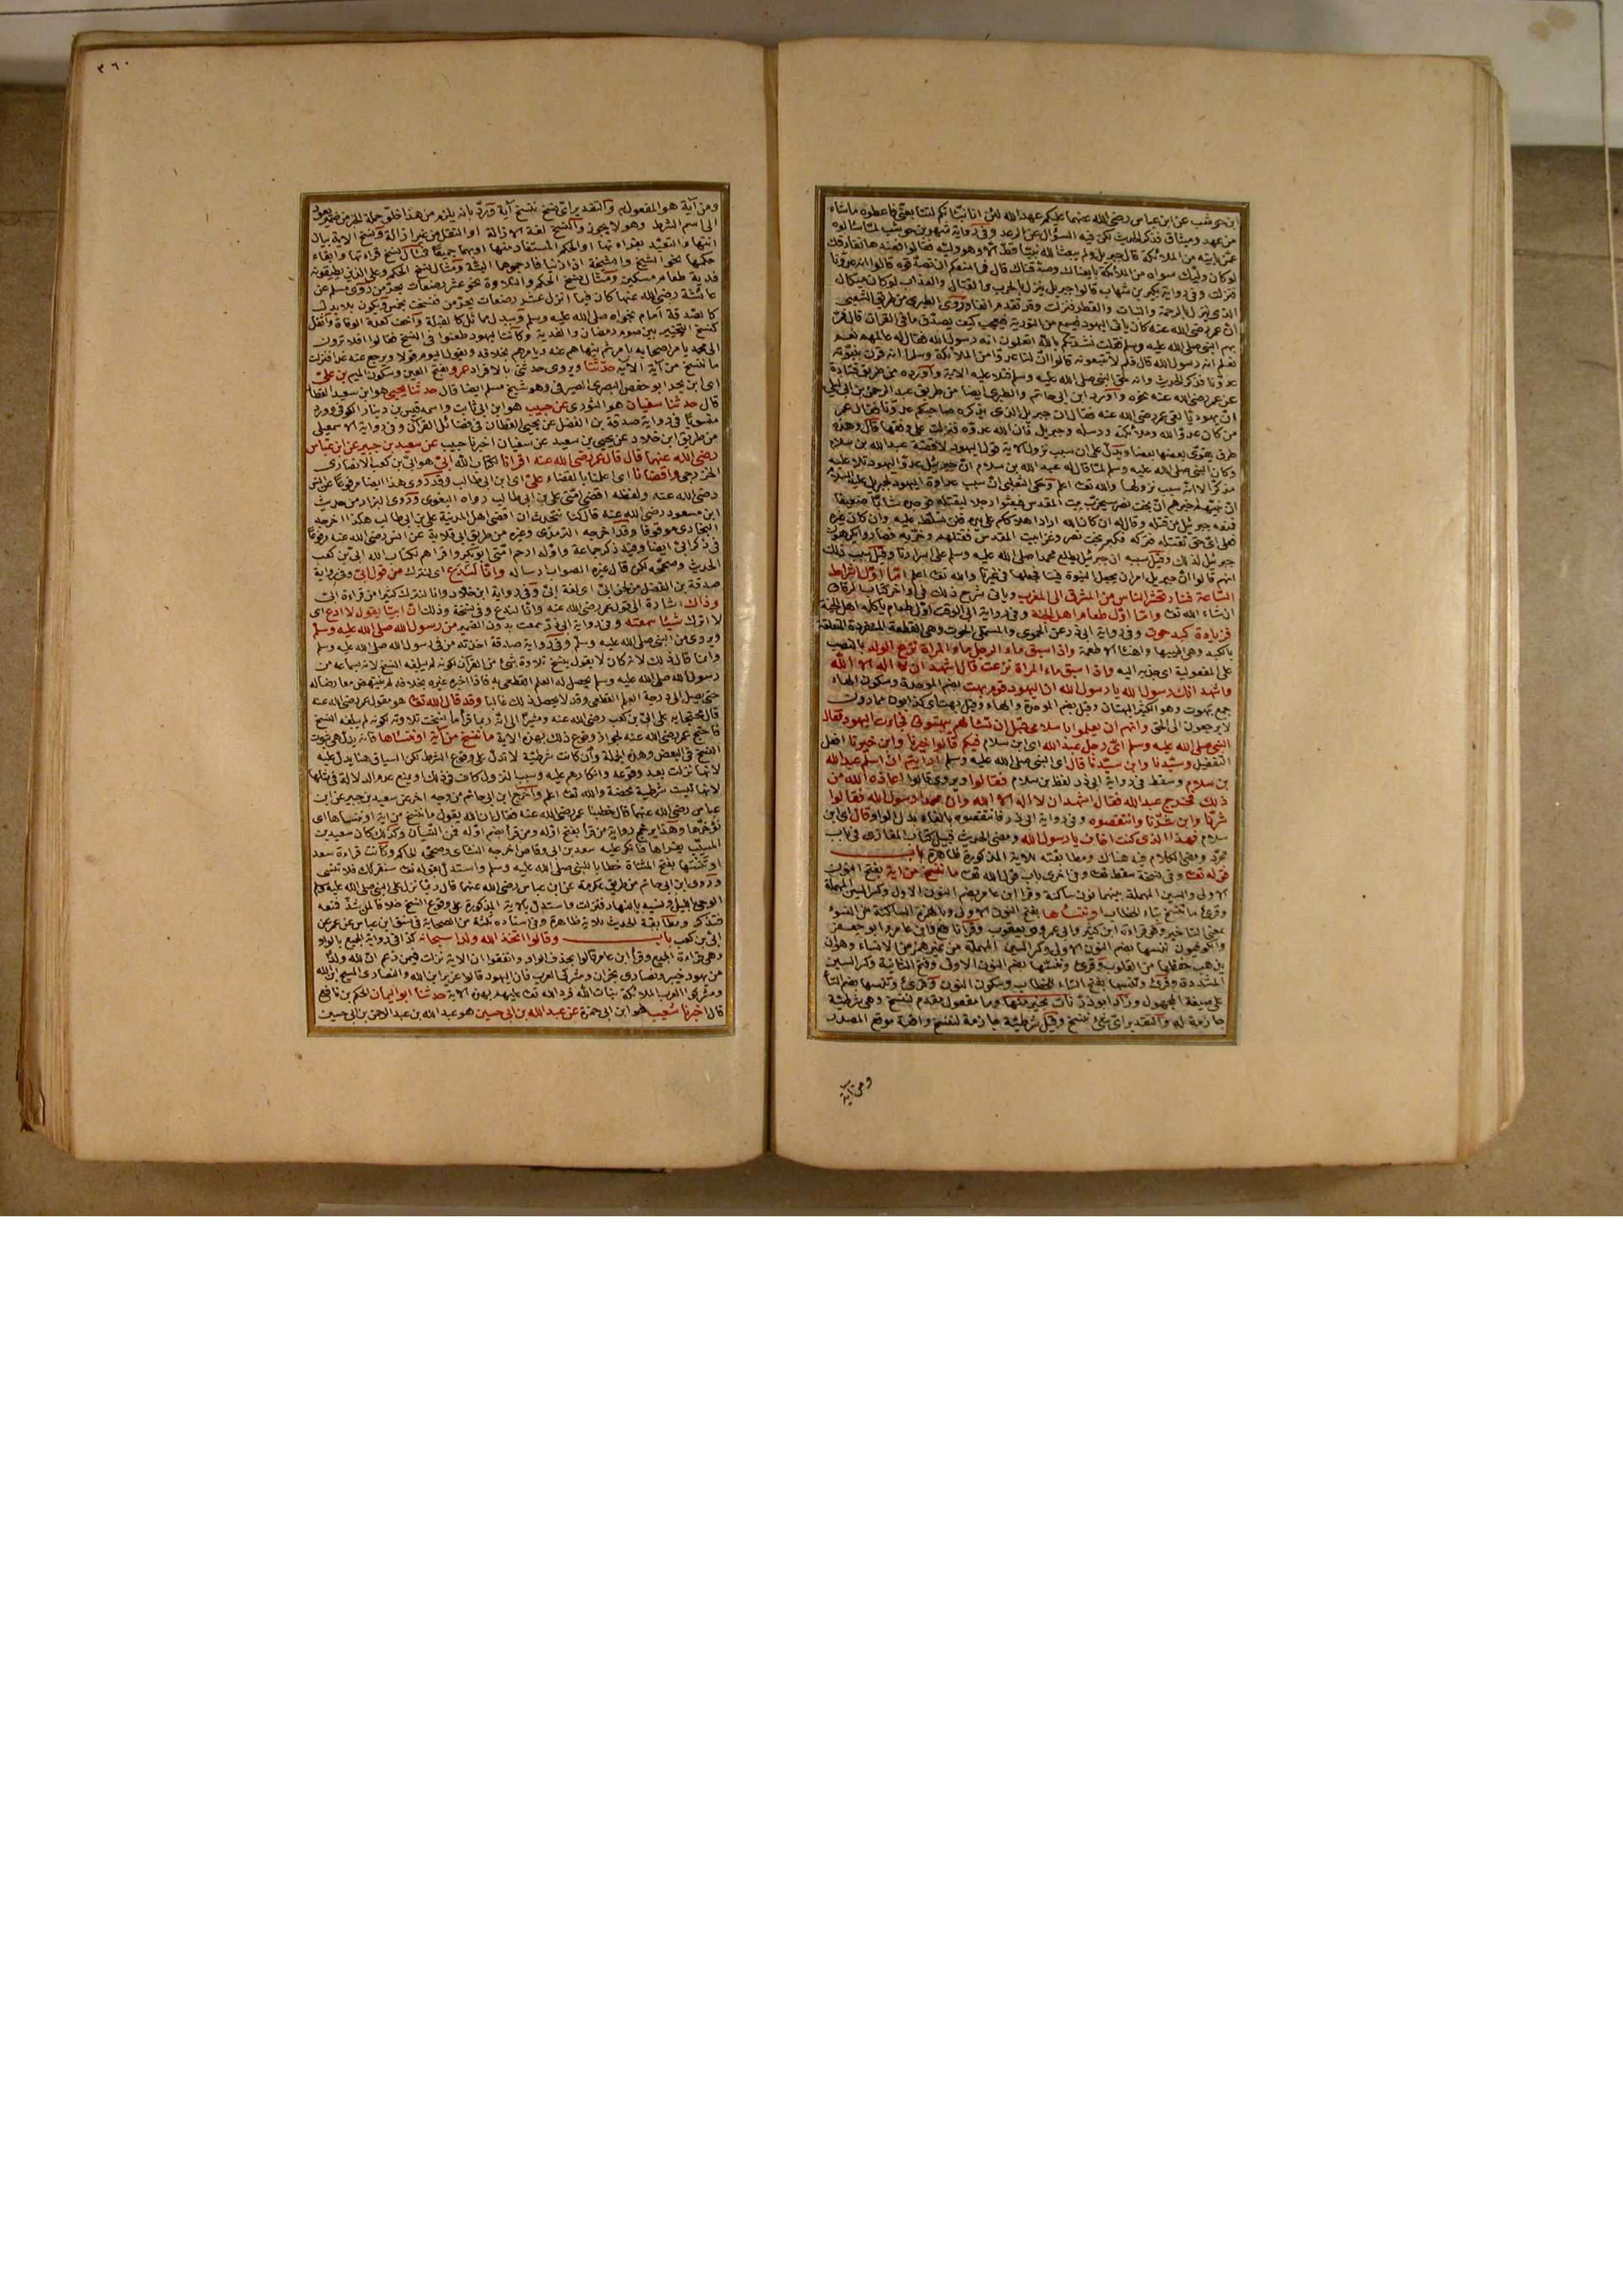 ابن حوشب عن ابن عباس رضي الله عنهما عليكم عهد الله لئن انا نبأتكم لتبايعني فاعطوه ماشاء
من عهد وميثاق فذكر الحديث لكن فيه السؤال عن الرعد وفي رواية شهر بن حوشب لما سألوه
عمن يأتيه من الملائكة قال جبريل ولم يبعث الله نبيا قط الا وهو وليه فقالوا فعندها نفارقك
لو كان وليك سواه من الملائكة بايعناك وصدقناك قال فما منعكم ان تصدقوه قالوا انه عدونا
فنزلت وفي رواية بكير بن شهاب قالوا جبريل ينزل بالحرب والقتال والعذاب لو كان ميكال
الذي ينزل بالرحمة والنبات والقطر فنزلت وروى الطبري من طريق الشعبي
ان عمر رضي الله عنه كان يأتي اليهود فيسمع من التورية فيتعجب كيف يصدق ما في القرآن قال فمر
بهم النبي صلى الله عليه وسلم فقلت نشدتكم بالله اتعلمون انه رسول الله فقال له عالمهم نعم
نعلم انه رسول الله قال فلم لا تتبعونه قالوا ان لنا عدوا من الملائكة وسلما وانه قرن بنبوته
عدونا فذكر الحديث وانه لحق النبي صلى الله عليه وسلم فتلا عليه الآية واورده من طريق قتادة
عن عمر رضي الله عنه نحوه واورد ابن ابي حاتم والطبري ايضا من طريق عبد الرحمن بن ابي ليلى
ان يهوديا لقي عمر رضي الله عنه فقال ان جبريل الذي يذكره صاحبكم عدو لنا فقال عمر
من كان عدوا لله وملائكته ورسله وجبريل فان الله عدوه فنزلت على وفقها قال وهذه
طرق يقوي بعضها بعضا ويدل على ان سبب نزول الآية قول اليهود لا قصة عبد الله بن سلام
وكان النبي صلى الله عليه وسلم لما قال له عبد الله بن سلام ان جبريل عدو اليهود تلا عليه
مذكرا له انه سبب نزولها والله تعا اعلم وحكى الثعلبي ان سبب عداوة اليهود لجبريل عليه السلام
ان نبيهم اخبرهم ان بخت نصر سيخرب بيت المقدس فبعثوا رجلا ليقتله فوجده شابا ضعيفا
فمنعه جبرئيل من قتله وقال له ان كان الله اراد اهلاككم على يده فلن تسلط عليه وان كان غيره
فعلى اي حق تقتله فتركه فكبر بخت نصر وغزا بيت المقدس فقتلهم وخربه فصاروا يكرهون
جبرئيل لذلك وقيل سببه ان جبرئيل يطلع محمدا صلى الله عليه وسلم على اسرارنا وقيل سبب ذلك
انهم قالوا ان جبريل امر ان يجعل النبوة فينا فجعلها في غيرنا والله تعا اعلم اما اول اشراط
الساعة فنار تحشر الناس من المشرق الى المغرب ويأتي شرح ذلك في اواخر كتاب الرقاق
ان شاء الله تعا واما اول طعام اهل الجنة وفي رواية ابي الوقت اول طعام يأكله اهل الجنة
فزيادة كبد حوت وفي رواية ابي ذر عن الحموي والمستملي الحوت وهي القطعة المنفردة المتعلقة
بالكبد وهي اطيبها واهنأ الاطعمة واذا سبق ماء الرجل ماء المرأة نزع الولد بالنصب
على المفعولية اي جذبه اليه واذا سبق ماء المرأة نزعت قال اشهد ان لا اله الا الله
واشهد انك رسول الله يا رسول الله ان اليهود قوم بهت بضم الموحدة وسكون الهاء
جمع بهوت وهو الكثير البهتان وقيل بضم الموحدة والهاء
لا يرجعون الى الحق وانهم ان يعلموا باسلامي قبل ان تسألهم يبهتوني فجاءت اليهود فقال
النبي صلى الله عليه وسلم اي رجل عبد الله اي ابن سلام فيكم قالوا خيرنا وابن خيرنا افعل
التفضيل وسيدنا وابن سيدنا قال اي النبي صلى الله عليه وسلم ارأيتم ان اسلم عبد الله
بن سلام وسقط في رواية ابي ذر لفظ بن سلام فقالوا ويروى قالوا اعاذه الله من
ذلك فخرج عبد الله فقال اشهد ان لا اله الا الله وان محمدا رسول الله فقالوا
شرنا وابن شرنا وانتقصوه وفي رواية ابي ذر فانتقصوه بالفاء بدل الواو قال اي ابن
سلام فهذا الذي كنت اخاف يا رسول الله ومضى الحديث قبيل كتاب المغازي في باب
مجرد ومضى الكلام فيه هناك ومطابقته للآية المذكورة ظاهرة باب
قوله تعا وفي نسخة سقط تعا وفي اخرى باب قول الله تعا ما ننسخ من آية بفتح النون
الاولى والسين المهملة بينهما نون ساكنة وقرأ ابن عامر بضم النون الاول وكسر السين المهملة
وقرئ ما تنسخ بتاء الخطاب او ننسأها بفتح النون الاولى وبالهمزة الساكنة من النسوء
بمعنى التأخير وهي قراءة ابن كثير وابي عمرو وقرأ نافع وابن عامر وابو جعفر
والكوفيون ننسها بضم النون الاولى وكسر السين المهملة من غير همز من الانساء وهو ان
يذهب حفظها من القلوب وقرئ وننسها بضم النون الاولى وفتح الثانية وكسر السين
المشددة وقرئ وتنسها بفتح التاء للخطاب وسكون النون وقرئ وتنسها بضم التاء
على صيغة المجهول وزاد ابو ذر نأت بخير منها وما مفعول مقدم لننسخ وهي شرطية
جازمة له والتقدير اي شيء ننسخ وقيل شرطية جازمة لننسخ واقعة موقع المصدر
ومن آية
٣٦٠
ومن آية هو المفعول به والتقدير اي نسخ ننسخ آية ورد بانه يلزم من هذا خلو جملة الجزء من ضمير يعود
الى اسم الشرط وهو لا يجوز والنسخ لغة الازالة او النقل من غير ازالة ونسخ الآية بيان
انتهاء التعبد بقراءتها او الحكم المستفاد منها او بهما جميعا فمثال نسخ قراءتها وابقاء
حكمها نحو الشيخ والشيخة اذا زنيا فارجموهما البتة ومثال نسخ الحكم وعلى الذين يطيقونه
فدية طعام مسكين ومثال نسخ الحكم والتلاوة نحو عشر رضعات يحرمن روى مسلم عن
عائشة رضي الله عنها كان فيما انزل عشر رضعات يحرمن فنسخت بخمس ويكون بلا بدل
كالصدقة امام نجواه صلى الله عليه وسلم وببدل مماثل كالقبلة واخف كعدة الوفاة واثقل
كنسخ التخيير بين صوم رمضان والفدية وكانت اليهود طعنوا في النسخ فقالوا الا ترون
الى محمد يأمر اصحابه بامر ثم ينهاهم عنه ويأمرهم بخلافه ويقول اليوم قولا ويرجع عنه غدا فنزلت
ما ننسخ من آية الآية حدثنا ويروى حدثني بالافراد عمرو بفتح العين وسكون الميم بن علي
اي ابن بحر ابو حفص البصري الصيرفي وهو شيخ مسلم ايضا قال حدثنا يحيى هو ابن سعيد القطان
قال حدثنا سفيان هو الثوري عن حبيب هو ابن ابي ثابت واسمه قيس بن دينار الكوفي وورد
منسوبا في رواية صدقة بن الفضل عن يحيى القطان في فضائل القرآن وفي رواية الاسمعيلي
من طريق ابن خلاد عن يحيى بن سعيد عن سفيان اخبرنا حبيب عن سعيد بن جبير عن ابن عباس
رضي الله عنهما قال قال عمر رضي الله عنه اقرأنا لكتاب الله ابي هو ابي بن كعب الانصاري
الخزرجي واقضانا اي اعلمنا بالقضاء علي اي ابن ابي طالب وقد روي هذا ايضا مرفوعا عن انس
رضي الله عنه ولفظه اقضى امتي علي بن ابي طالب رواه البغوي وروى البزار من حديث
ابن مسعود رضي الله عنه قال كنا نتحدث ان اقضى اهل المدينة علي بن ابي طالب هكذا اخرجه
البخاري موقوفا وقد اخرجه الترمذي وغيره من طريق ابي قلابة عن انس رضي الله عنه مرفوعا
في ذكر ابي ايضا وفيه ذكر جماعة واوله ارحم امتي ابو بكر واقرأهم لكتاب الله ابي بن كعب
الحديث وصححه لكن قال غيره الصواب ارساله وانا لندع اي لنترك من قول ابي وفي رواية
صدقة بن الفضل من لحن ابي اي لغة ابي وفي رواية ابن خلاد وانا لنترك كثيرا من قراءة ابي
وذاك اشارة الى قول عمر رضي الله عنه وانا لندع وفي نسخة وذلك ان ابيا يقول لا ادع اي
لا اترك شيئا سمعته وفي رواية ابي ذر سمعت بدون الضمير من رسول الله صلى الله عليه وسلم
ويروى من النبي صلى الله عليه وسلم وفي رواية صدقة اخذته من في رسول الله صلى الله عليه وسلم
وانما قال ذلك لانه كان لا يقول بنسخ تلاوة شيء من القرآن لكونه لم يبلغه النسخ لانه بسماعه من
رسول الله صلى الله عليه وسلم يحصل له العلم القطعي به فاذا اخبره غيره بخلافه لم ينتهض معارضا له
حتى يصل الى درجة العلم القطعي وقد لا يحصل ذلك غالبا وقد قال الله تعا هو مقول عمر رضي الله عنه
قال محتجا به على ابي بن كعب رضي الله عنه ومشيرا الى انه ربما قرأ ما نسخت تلاوته لكونه لم يبلغه النسخ
فاحتج عمر رضي الله عنه لجواز وقوع ذلك بهذه الآية ما ننسخ من آية او ننسأها فانه يدل على ثبوت
النسخ في البعض وهذه الجملة وان كانت شرطية لا تدل على وقوع الشرط لكن السياق هنا يدل عليه
لانها نزلت بعد وقوعه وانكارهم عليه وسبب النزول كاف في ذلك او يمنع عدم الدلالة في مثلها
لانها ليست شرطية محضة والله تعا اعلم واخرج ابن ابي حاتم من وجه آخر عن سعيد بن جبير عن ابن
عباس رضي الله عنهما قال خطبنا عمر رضي الله عنه فقال ان الله يقول ما ننسخ من آية او ننسأها اي
نؤخرها وهذا يرجح رواية من قرأ بفتح اوله ومن قرأ بضم اوله فمن النسيان وكذلك كان سعيد بن
المسيب يقرأها فانكر عليه سعد بن ابي وقاص اخرجه النسائي وصححه الحاكم وكانت قراءة سعد
او تنسها بفتح المثناة خطابا للنبي صلى الله عليه وسلم واستدل بقوله تعا سنقرئك فلا تنسى
وروى ابن ابي حاتم من طريق عكرمة عن ابن عباس رضي الله عنهما قال ربما نزل على النبي صلى الله عليه وسلم
الوحي بالليل ونسيه بالنهار فنزلت واستدل بالآية المذكورة على وقوع النسخ خلافا لمن شذ فمنعه
ومطابقة الحديث للآية ظاهرة وفي اسناده ثلثة من الصحابة في نسق ابن عباس عن عمر عن
ابي بن كعب باب وقالوا اتخذ الله ولدا سبحانه كذا في رواية الجميع بالواو
وهي قراءة الجميع وقرأ ابن عامر قالوا بحذف الواو واتفقوا ان الآية نزلت فيمن زعم ان لله ولدا
من يهود خيبر ونصارى نجران ومشركي العرب فان اليهود قالوا عزير ابن الله والنصارى المسيح ابن الله
ومشركي العرب الملائكة بنات الله فرد الله تعا عليهم بهذه الآية حدثنا ابو اليمان الحكم بن نافع
قال اخبرنا شعيب هو ابن ابي حمزة عن عبد الله بن ابي حسين هو عبد الله بن عبد الرحمن بن ابي حسين